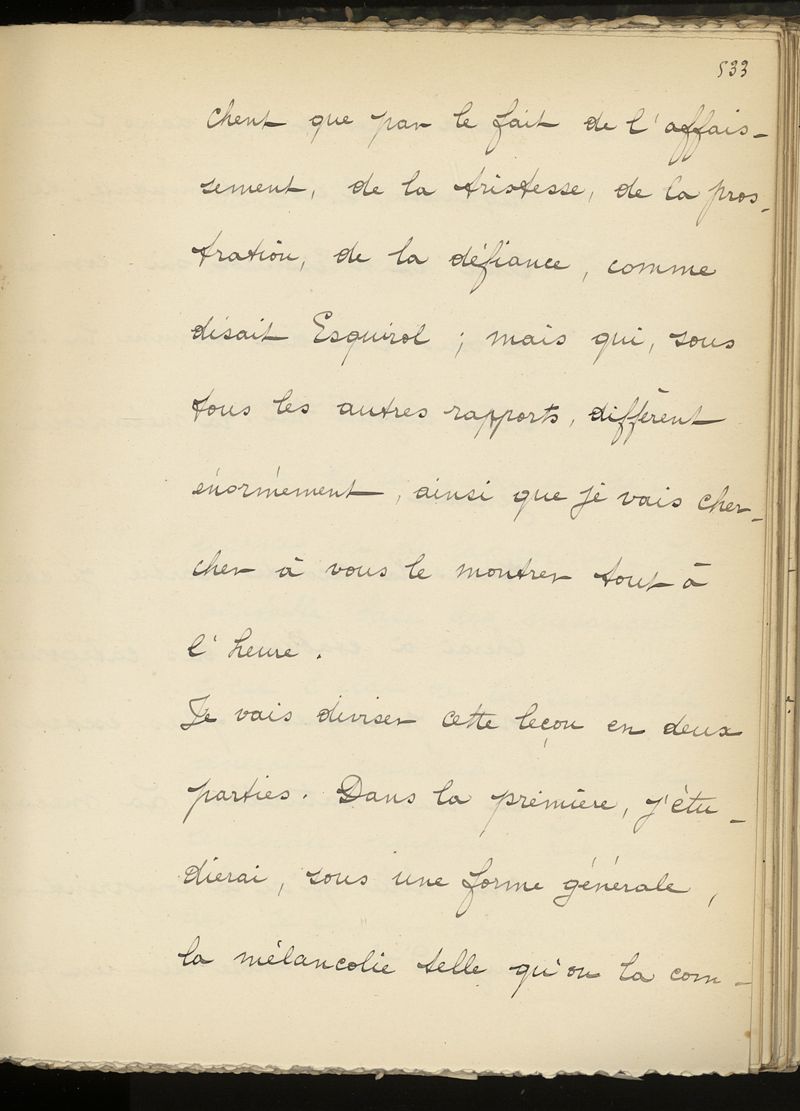 533
chent que par le fait de l'affais-
sement, de la tristesse, de la pros-
tration, de la défiance, comme
disait Esquirol ; mais qui, sous
tous les autres rapports, diffèrent
énormément, ainsi que je vais cher-
cher à vous le montrer tout à
l'heure.
Je vais diviser cette leçon en deux
parties. Dans la première, j'étu-
dierai, sous une forme générale,
la mélancolie telle qu'on la com-